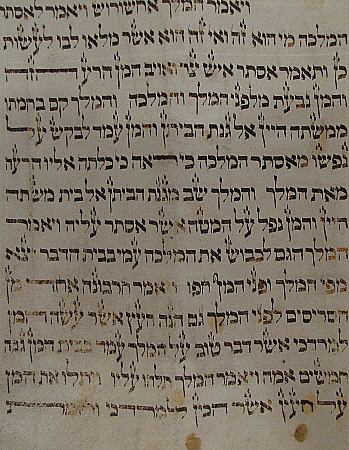 ויאמר המלך אחשורוש ויאמר לאסתר
המלכה מי הוא זה ואי זה הוא אשר מלאו לבו לעשות
כן ותאמר אסתר איש צר ואויב המן הרע
והמן נבעת מלפני המלך והמלכה והמלך קם בחמתו
ממשתה היין אל גנת הביתן והמן עמד לבקש על
נפשו מאסתר המלכה כי ראה כי כלתה אליו הרעה
מאת המלך והמלך שב מגנת הביתן אל בית משתה
היין והמן נפל על המטה אשר אסתר עליה ויאמר
המלך הגם לכבוש את המלכה עמי בבית הדבר יצא
מפי המלך ופני המן חפו ויאמר חרבונה אחד מן
הסריסים לפני המלך גם הנה העץ אשר עשה המן
למרדכי אשר דבר טוב על המלך עמד בבית המן גבה
חמשים אמה ויאמר המלך תלהו עליו ויתלו את המן
על העץ אשר הכין למרדכי